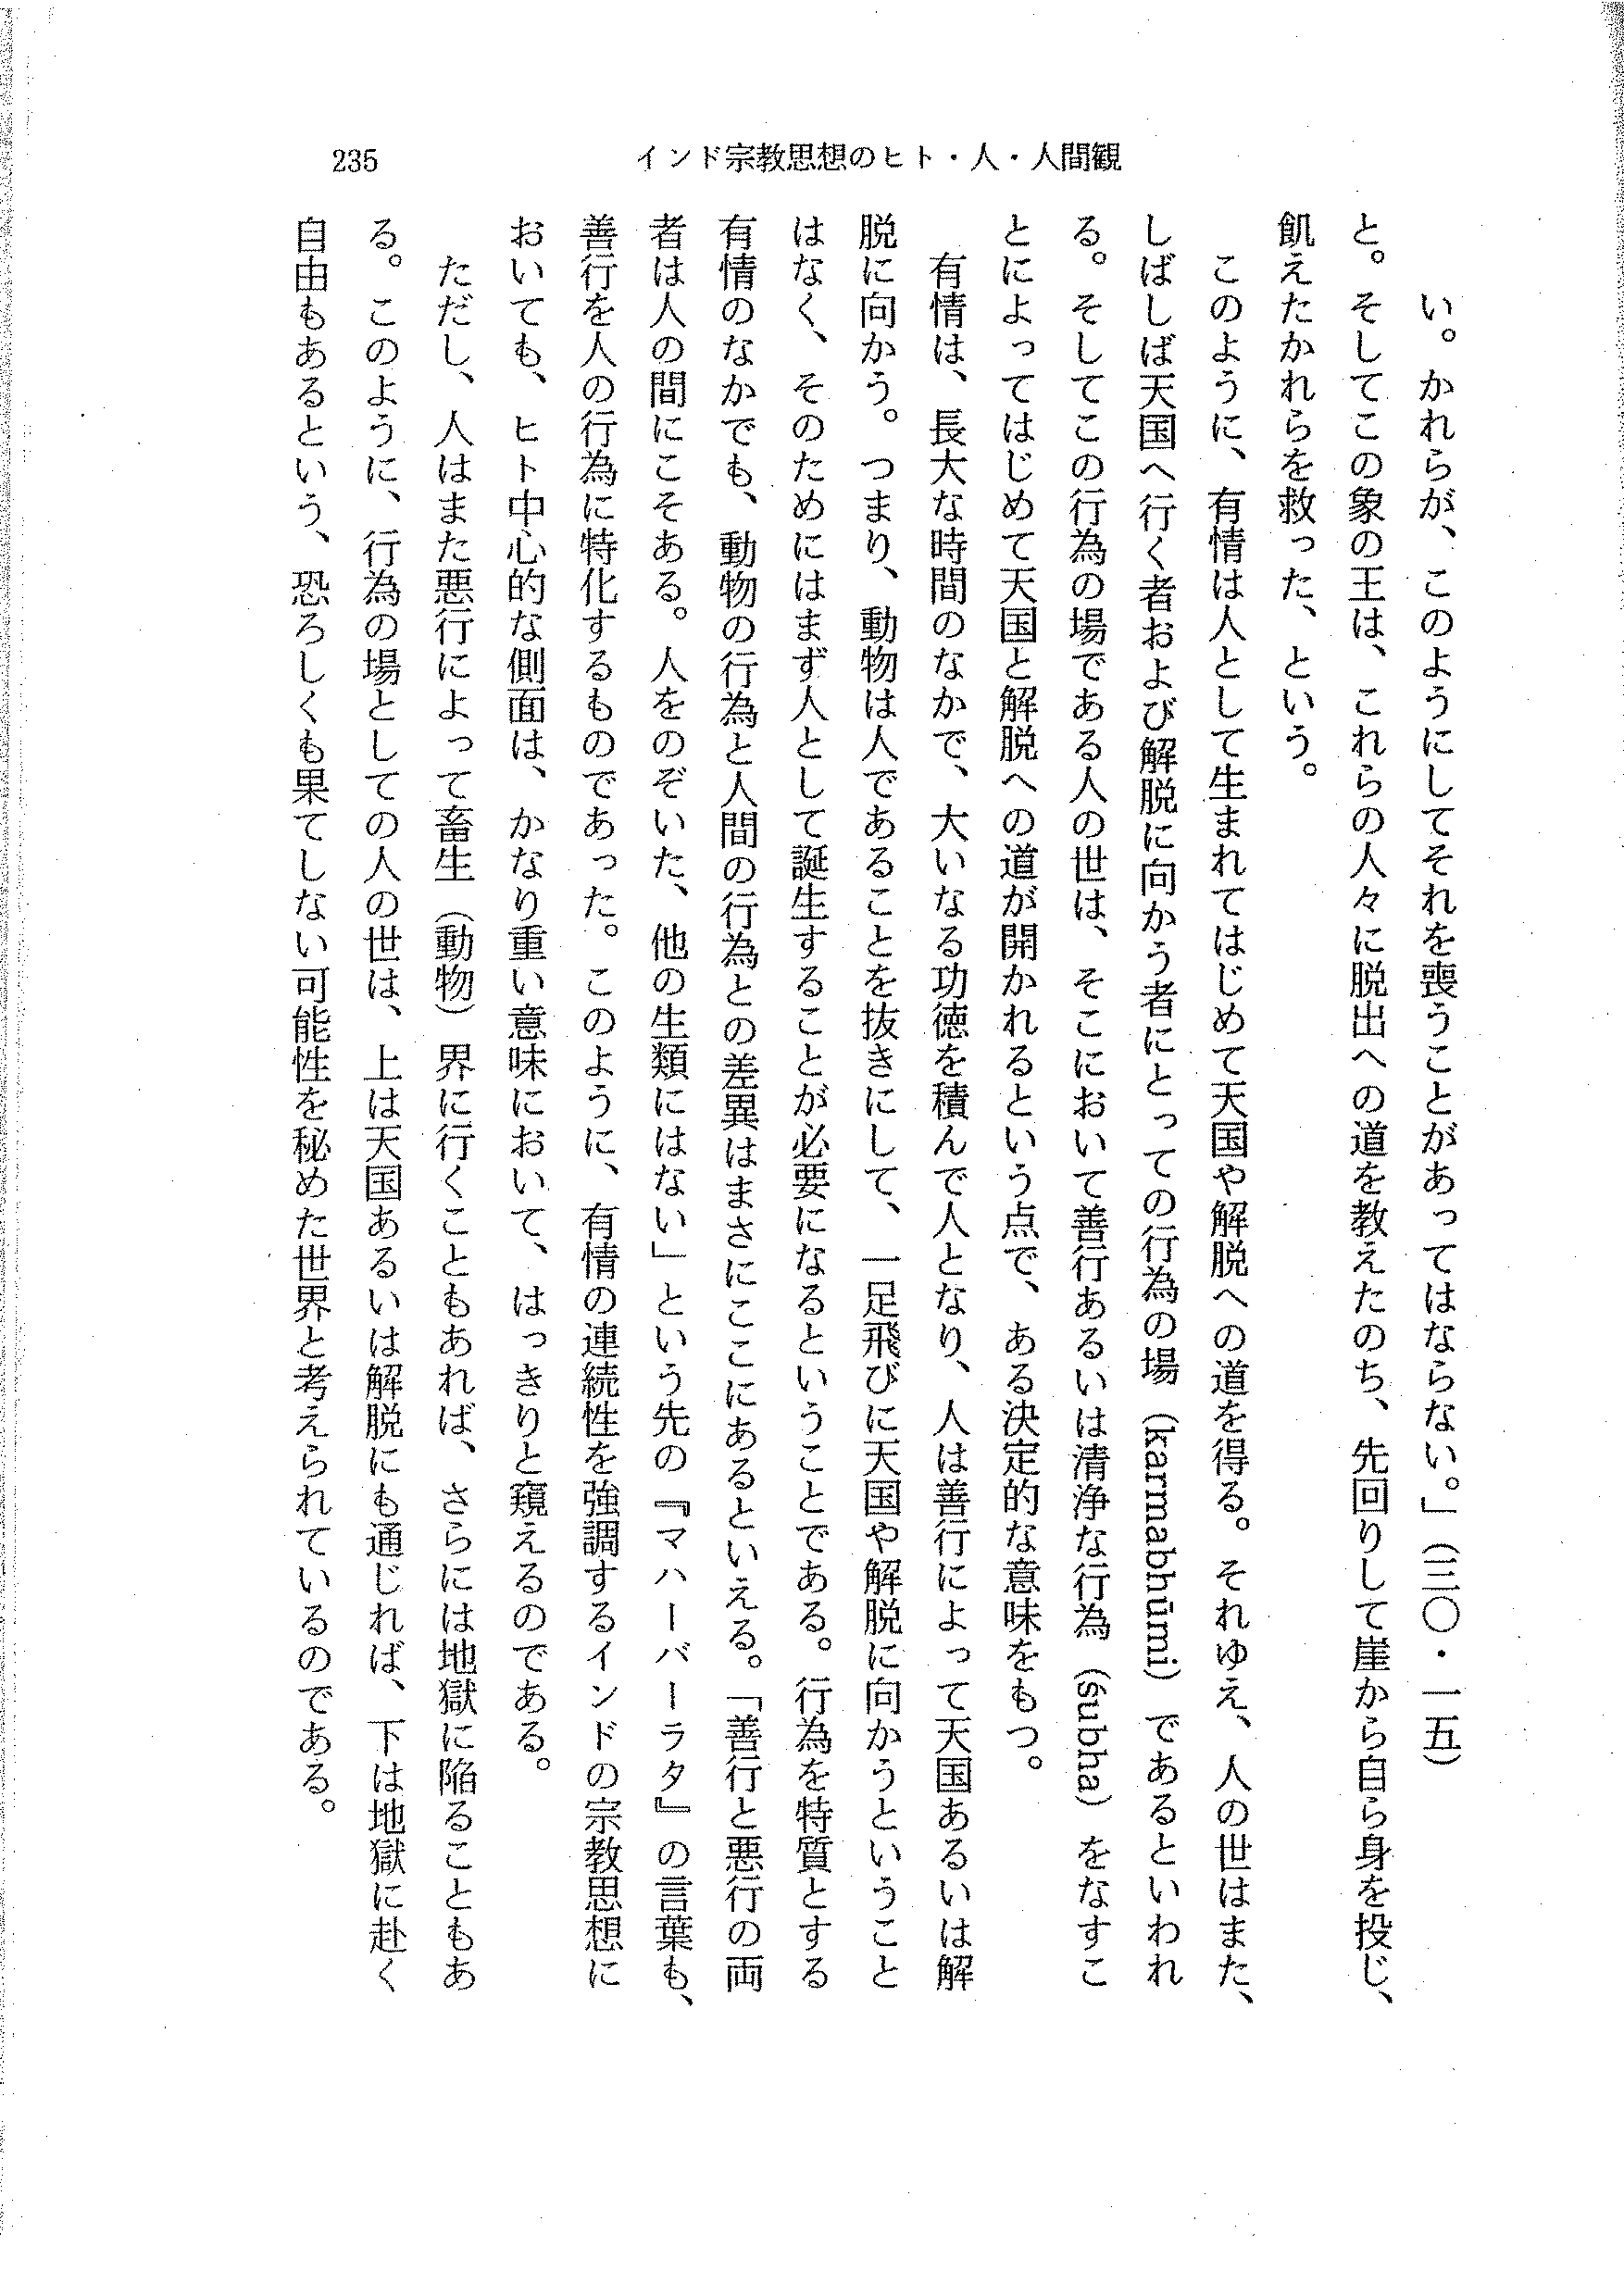 235
インド宗教思想のヒト・人・人間観
い。かれらが、このようにしてそれを喪うことがあってはならない。」（三〇・一五）
と。そしてこの象の王は、これらの人々に脱出への道を教えたのち、先回りして崖から自ら身を投じ、
飢えたかれらを救った、という。
このように、有情は人として生まれてはじめて天国や解脱への道を得る。それゆえ、人の世はまた、
しばしば天国へ行く者および解脱に向かう者にとっての行為の場（karmabhūmi）であるといわれ
る。そしてこの行為の場である人の世は、そこにおいて善行あるいは清浄な行為（śubha）をなすこ
とによってはじめて天国と解脱への道が開かれるという点で、ある決定的な意味をもつ。
有情は、長大な時間のなかで、大いなる功徳を積んで人となり、人は善行によって天国あるいは解
脱に向かう。つまり、動物は人であることを抜きにして、一足飛びに天国や解脱に向かうということ
はなく、そのためにはまず人として誕生することが必要になるということである。行為を特質とする
有情のなかでも、動物の行為と人間の行為との差異はまさにここにあるといえる。「善行と悪行の両
者は人の間にこそある。人をのぞいた、他の生類にはない」という先の『マハーバーラタ』の言葉も、
善行を人の行為に特化するものであった。このように、有情の連続性を強調するインドの宗教思想に
おいても、ヒト中心的な側面は、かなり重い意味において、はっきりと窺えるのである。
ただし、人はまた悪行によって畜生（動物）界に行くこともあれば、さらには地獄に陥ることもあ
る。このように、行為の場としての人の世は、上は天国あるいは解脱にも通じれば、下は地獄に赴く
自由もあるという、恐ろしくも果てしない可能性を秘めた世界と考えられているのである。